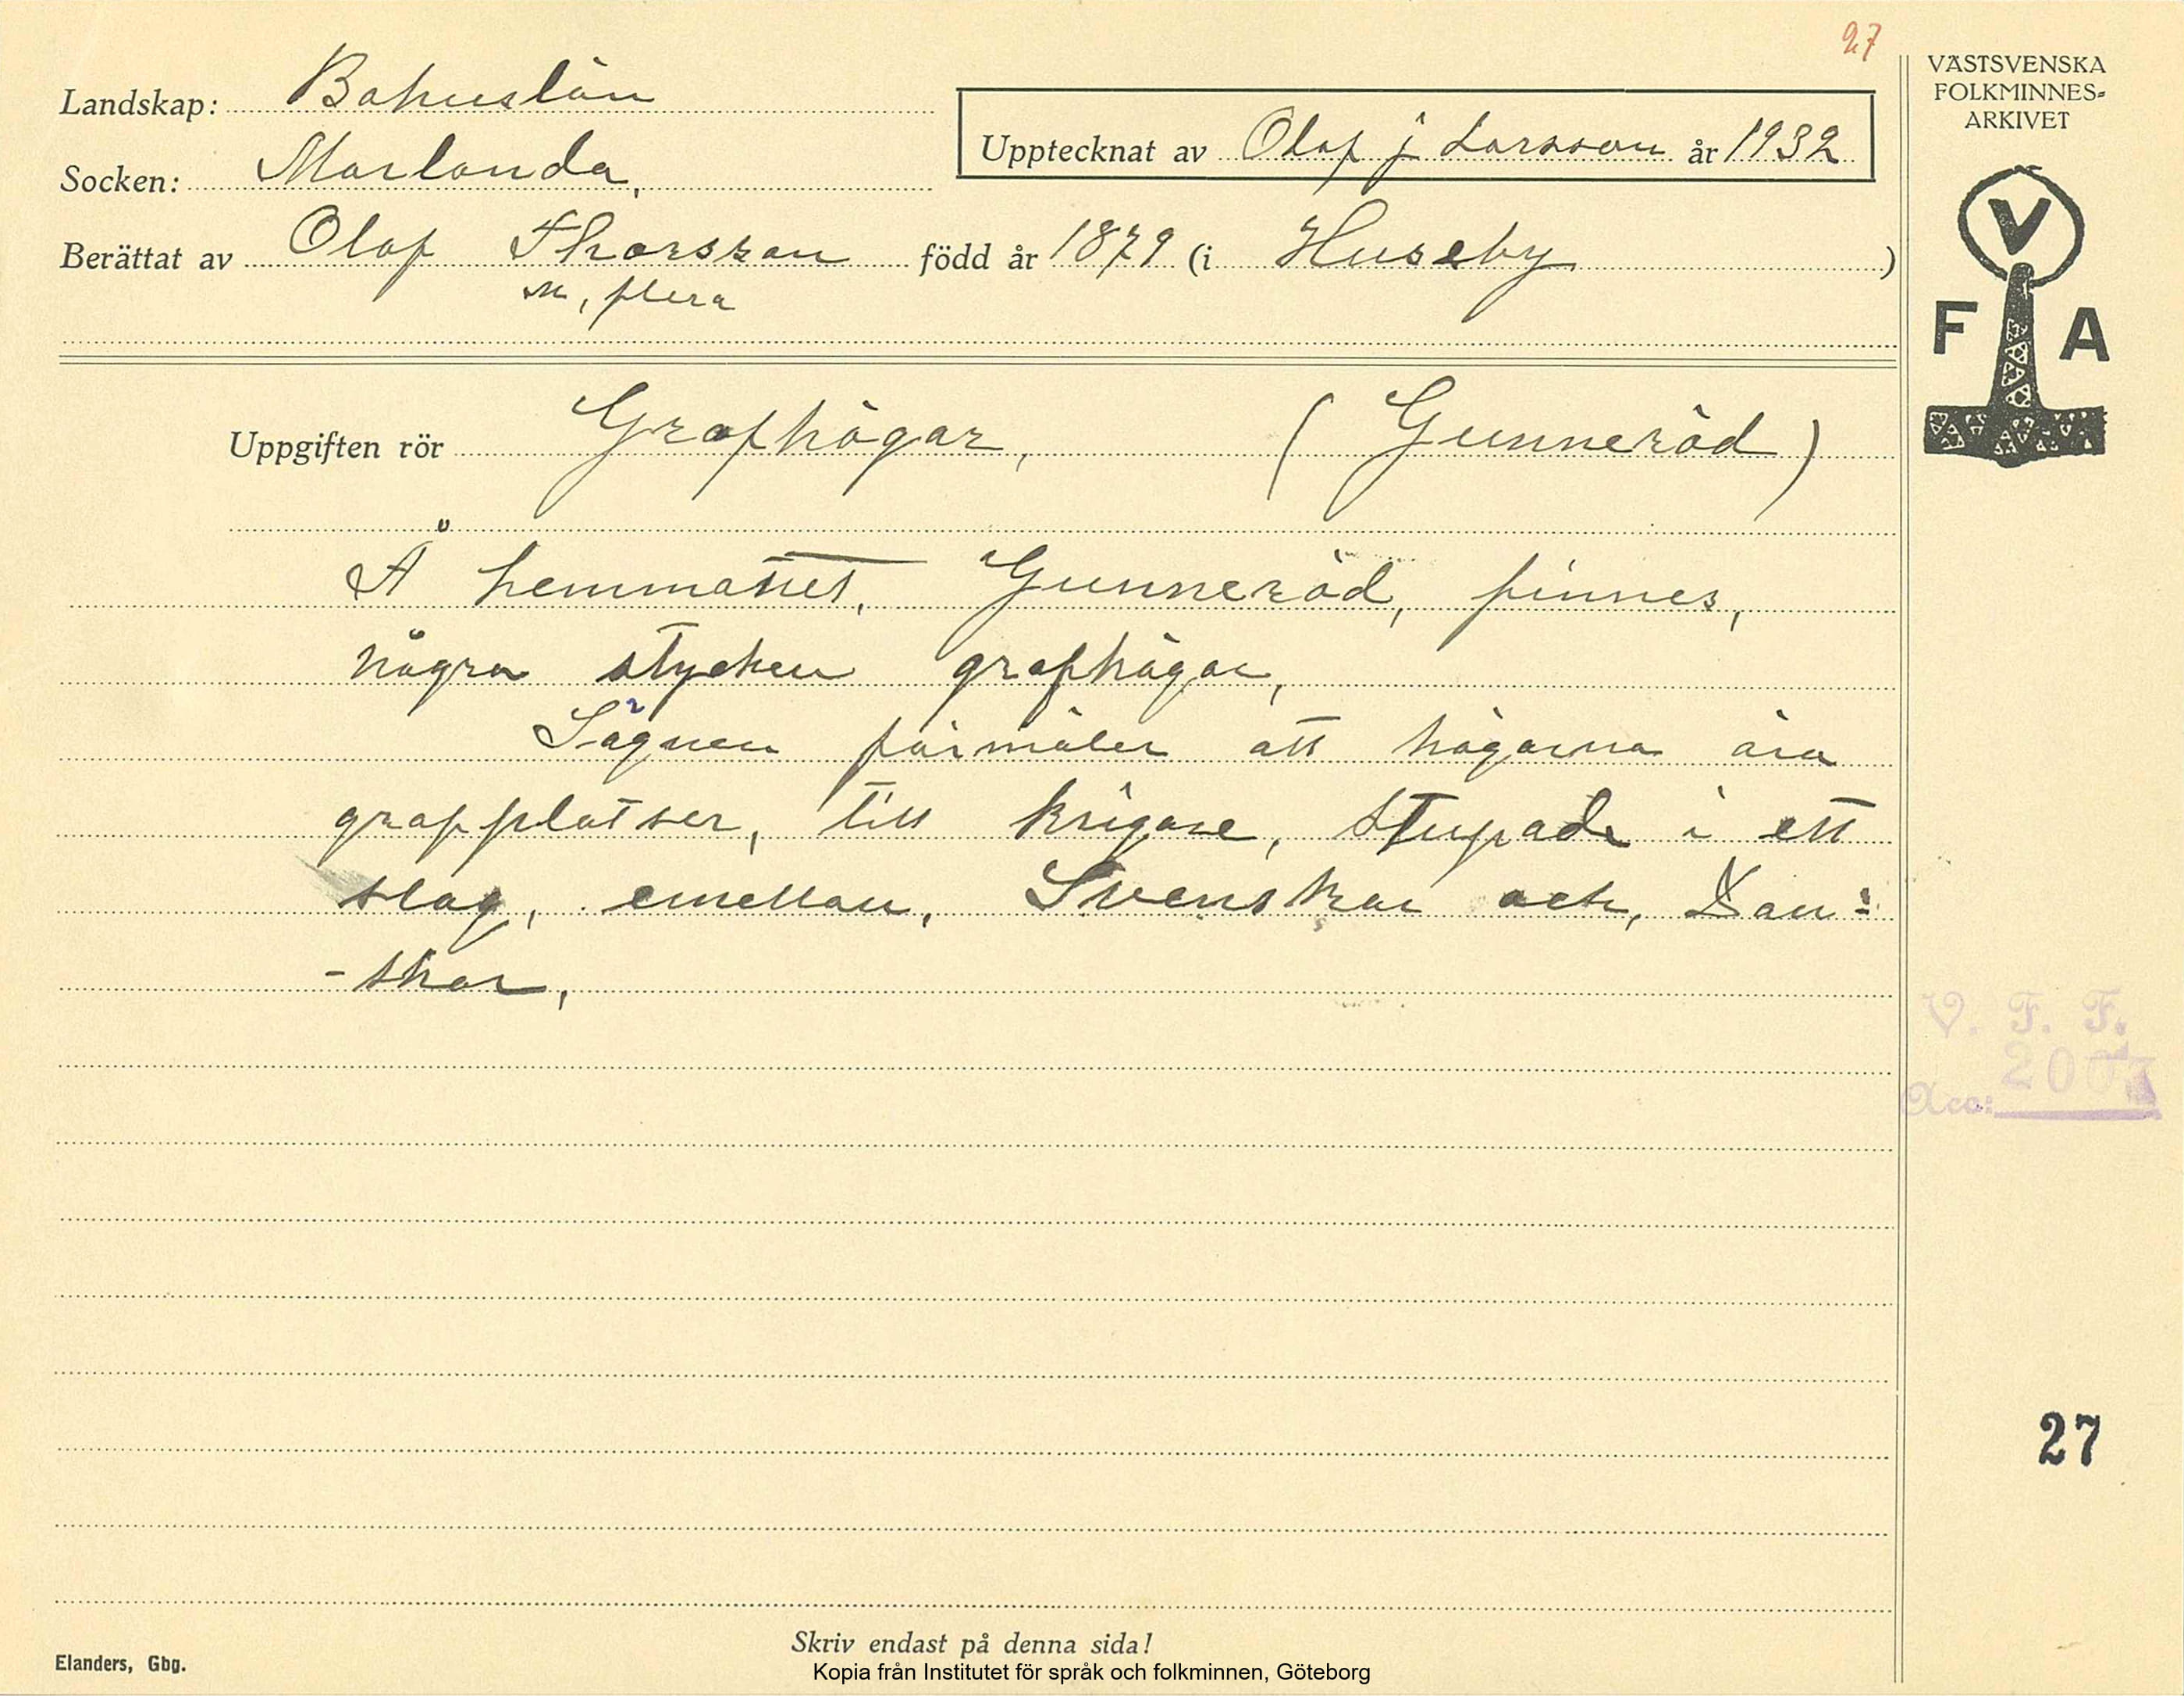 27
VÄSTSVENSKA
FOLKMINNES-
ARKIVET
Landskap: Bohuslän
Upptecknat av Olof j Larsson år 1932
Socken: Morlanda,
Berättat av Olof Thorsson född år 1879 (i Huseby)
m, flera
V
F A
Uppgiften rör Grafhögar, (Gunneröd)
Å hemmanet, Gunneröd, finnes,
några stycken grafhögar,
Sägnen förmäler att högarna äro
grafplatser, till krigare, stupade i ett
slag, emellan, Svenskar och, Dan-
-skar,
V. F. F.
Acc:
27
Skriv endast på denna sida!
Elanders, Gbg.
Kopia från Institutet för språk och folkminnen, Göteborg